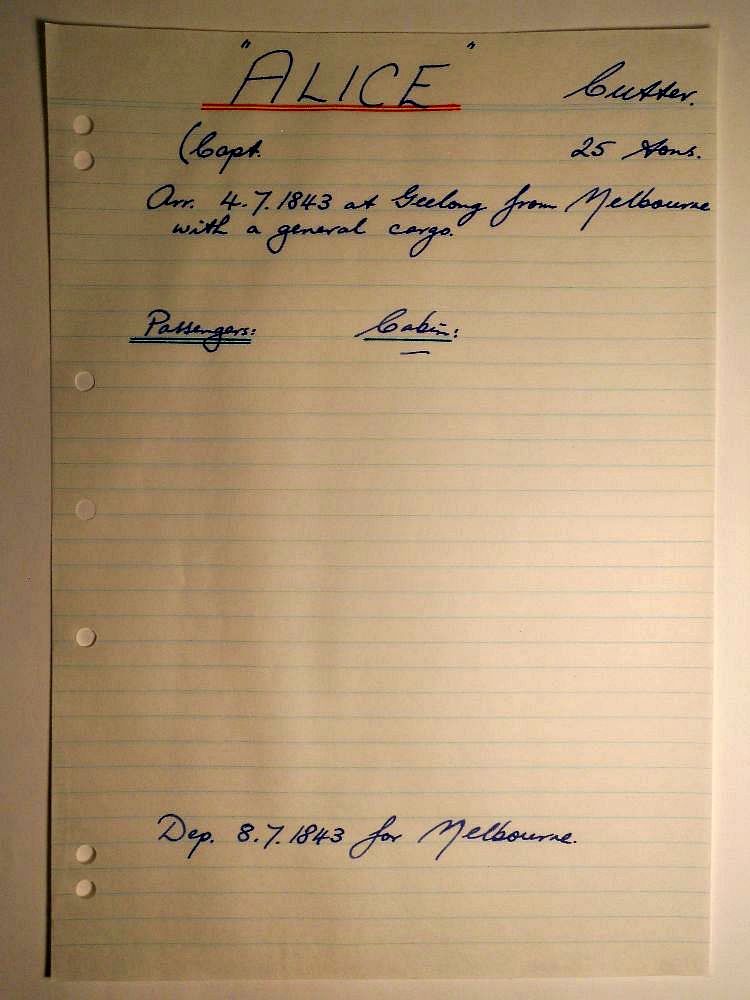 "ALICE" Cutter.
(Capt. 25 tons.
Arr. 4.7.1843 at Geelong from Melbourne
with a general cargo.
Passengers: Cabin:
—
Dep. 8.7.1843 for Melbourne.